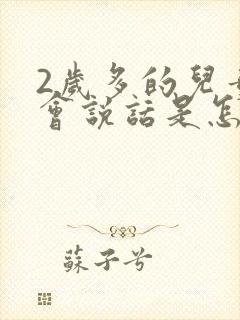 2歲多的兒
會説話是怎
蘇子兮